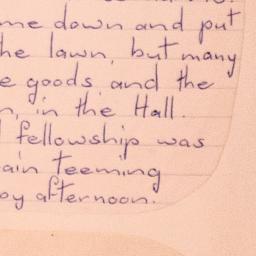 me down and put
he lawn, but many
e goods and the
n, in the Hall.
fellowship was
ain teeming
oy afternoon.